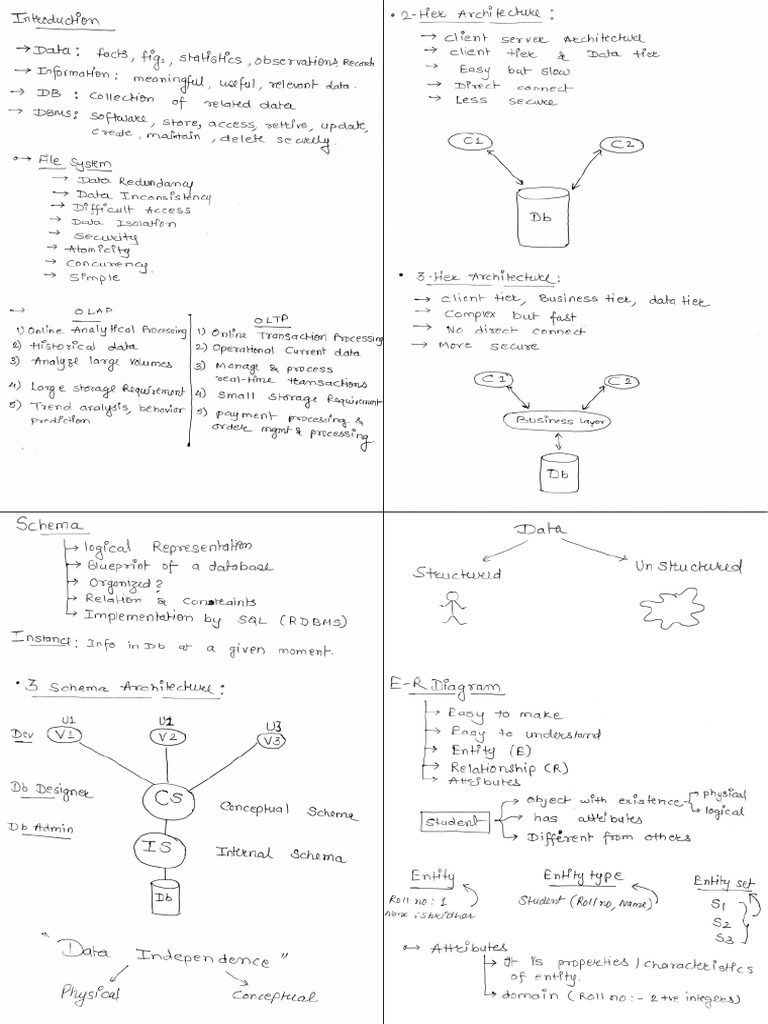 Introduction
→ Data: facts, fig., statistics, observations Records
→ Information: meaningful, useful, relevant data.
→ DB: collection of related data
→ DBMS: software, store, access, retrive, update,
create, maintain, delete securely.
→ File System
→ Data Redundancy
→ Data Inconsistency
→ Difficult Access
→ Data Isolation
→ Security
→ Atomicity
→ Concurency
→ Simple
→ OLAP
1) Online Analytical Processing
2) Historical data
3) Analyze large volumes
4) Large storage Requirement
5) Trend analysis, behavior
prediction
OLTP
1) Online Transaction Processing
2) Operational Current data
3) Manage & process
real-time transactions
4) Small storage Requirement
5) payment processing &
order mgmt & processing
• 2-tier Architecture:
→ client server Architecture
→ client tier & Data tier
→ Easy but slow
→ Direct connect
→ Less secure
C1 C2
Db
• 3-tier Architecture:
→ client tier, Business tier, data tier
→ Complex but fast
→ No direct connect
→ More secure
C1 C2
Business layer
Db
Schema
→ logical Representation
→ Blueprint of a database
→ Organized?
→ Relation & Constraints
→ Implementation by SQL (RDBMS)
Instance: Info in Db at a given moment.
• 3 Schema Architecture:
U1 U2 U3
Dev V1 V2 V3
Db Designer CS Conceptual Schema
Db Admin IS Internal Schema
Db
"Data Independence"
Physical Conceptual
Data
Structured Unstructured
E-R Diagram
→ Easy to make
→ Easy to understand
→ Entity (E)
→ Relationship (R)
→ Attributes
Student
→ object with existence physical
logical
→ has attributes
→ Different from others
Entity Entity type Entity set
Roll no: 1 Student (Roll no, Name) S1
Name: Shridhar S2
S3
→ Attributes
→ It is properties / characteristics
of entity.
→ domain (Roll no:- 2 +ve integers)